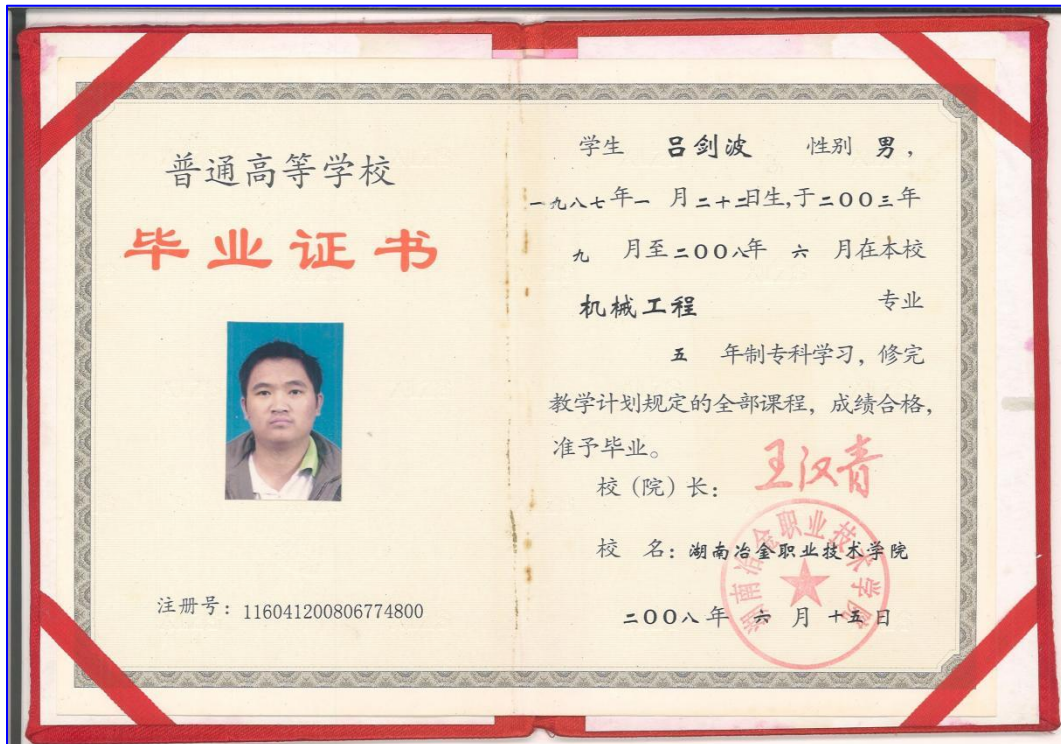 普通高等学校
毕业证书
注册号：116041200806774800
学生 吕剑波 性别 男，
一九八七年一 月二十二日生,于二〇〇三年
九 月至二〇〇八年 六 月在本校
机械工程 专业
五 年制专科学习，修完
教学计划规定的全部课程，成绩合格，
准予毕业。
校（院）长：王汉青
校 名：湖南冶金职业技术学院
二〇〇八年 六 月 十五日
湖南冶金职业技术学院